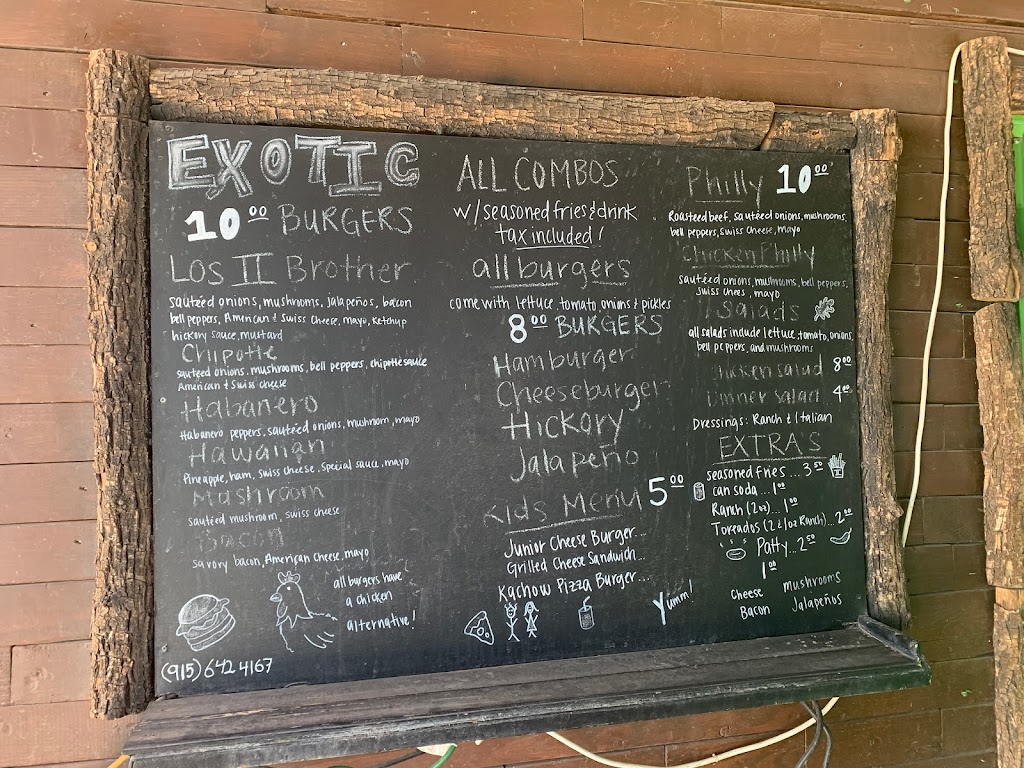 EXOTIC
10 00 BURGERS
Los II Brother
sautéed onions, mushrooms, Jalapeños, bacon
bell peppers, American & Swiss Cheese, mayo, Ketchup
hickory sauce, mustard
Chipotle
sautéed onions, mushrooms, bell peppers, chipotle sauce
American & Swiss cheese
Habanero
Habanero peppers, sautéed onions, mushroom, mayo
Hawaiian
Pineapple, ham, Swiss cheese, special sauce, mayo
Mushroom
sautéed mushroom, swiss cheese
Bacon
savory bacon, American Cheese, mayo
all burgers have
a chicken
alternative!
(915) 642 4167
ALL COMBOS
w/seasoned fries & drink
tax included!
all burgers
come with lettuce, tomato onions & pickles
8 00 BURGERS
Hamburger
Cheeseburger
Hickory
Jalapeño
Kids Menu 5 00
Junior Cheese Burger...
Grilled Cheese Sandwich...
Kachow Pizza Burger...
Yumm!
Philly 10 00
Roasteed beef, sautéed onions, mushrooms,
bell peppers, Swiss Cheese, mayo
Chicken Philly
sautéed onions, mushrooms, bell peppers,
Swiss chees, mayo
Salads
all salads include lettuce, tomato, onions,
bell peppers, and mushrooms
Chicken salad 8 00
Dinner salad 4 00
Dressings: Ranch & Italian
EXTRA'S
seasoned fries... 3 50
can soda... 1 00
Ranch (2oz)... 1 00
Toreados (2 & 1oz Ranch)... 2 00
Patty... 2 50
1 00
Cheese mushrooms
Bacon Jalapeños